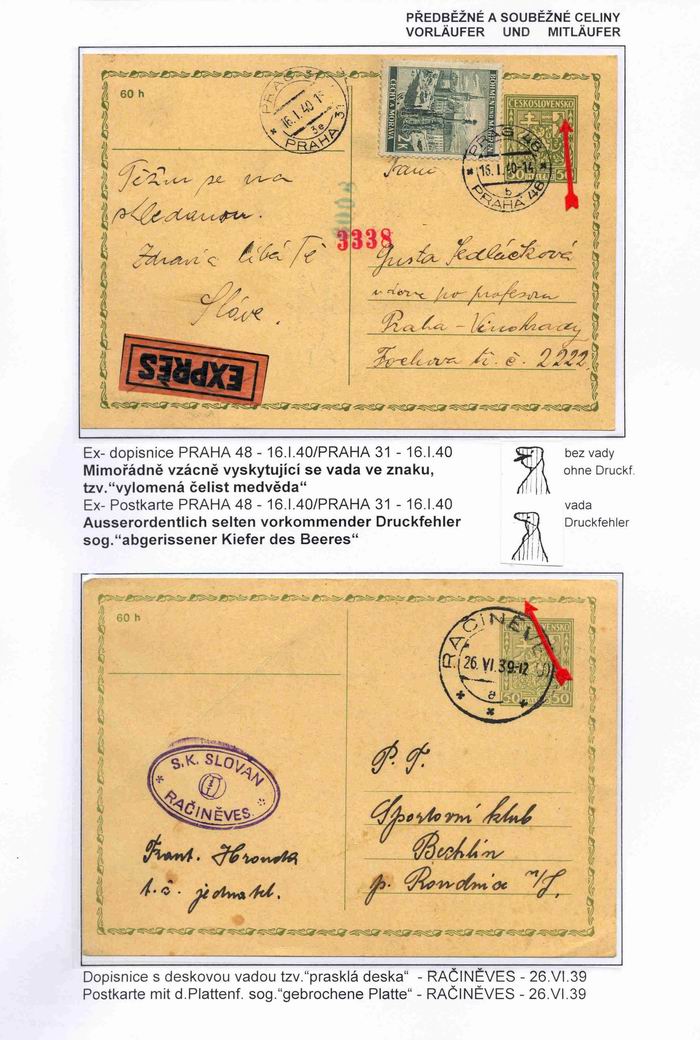 PŘEDBĚŽNÉ A SOUBĚŽNÉ CELINY
VORLÄUFER UND MITLÄUFER
60 h
PRAG 31
16.I.40
3e
PRAHA 31
BÖHMEN und
ČECHY A MORAVA
ČESKOSLOVENSKO
50 50
PRAG 48
16.I.40-14
b
PRAHA 48
Těším se na
shledanou.
Zdraví a líbá Tě
Sláve.
3338
Paní
Gusta Sedláčková
vdova po profesoru
Praha - Vinohrady
Fochova tř. č. 2222.
EXPRÈS
Ex- dopisnice PRAHA 48 - 16.I.40/PRAHA 31 - 16.I.40
Mimořádně vzácně vyskytující se vada ve znaku,
tzv.“vylomená čelist medvěda“
Ex- Postkarte PRAHA 48 - 16.I.40/PRAHA 31 - 16.I.40
Ausserordentlich selten vorkommender Druckfehler
sog.“abgerissener Kiefer des Beeres“
bez vady
ohne Druckf.
vada
Druckfehler
60 h
RAČINĚVES
26.VI.39-12
a
50 50
S.K. SLOVAN
RAČINĚVES.
Frant. Hronda
t.č. jednatel.
P. T.
Sportovní klub
Bechlín
p. Roudnice n/L.
Dopisnice s deskovou vadou tzv.“prasklá deska“ - RAČINĚVES - 26.VI.39
Postkarte mit d.Plattenf. sog.“gebrochene Platte“ - RAČINĚVES - 26.VI.39